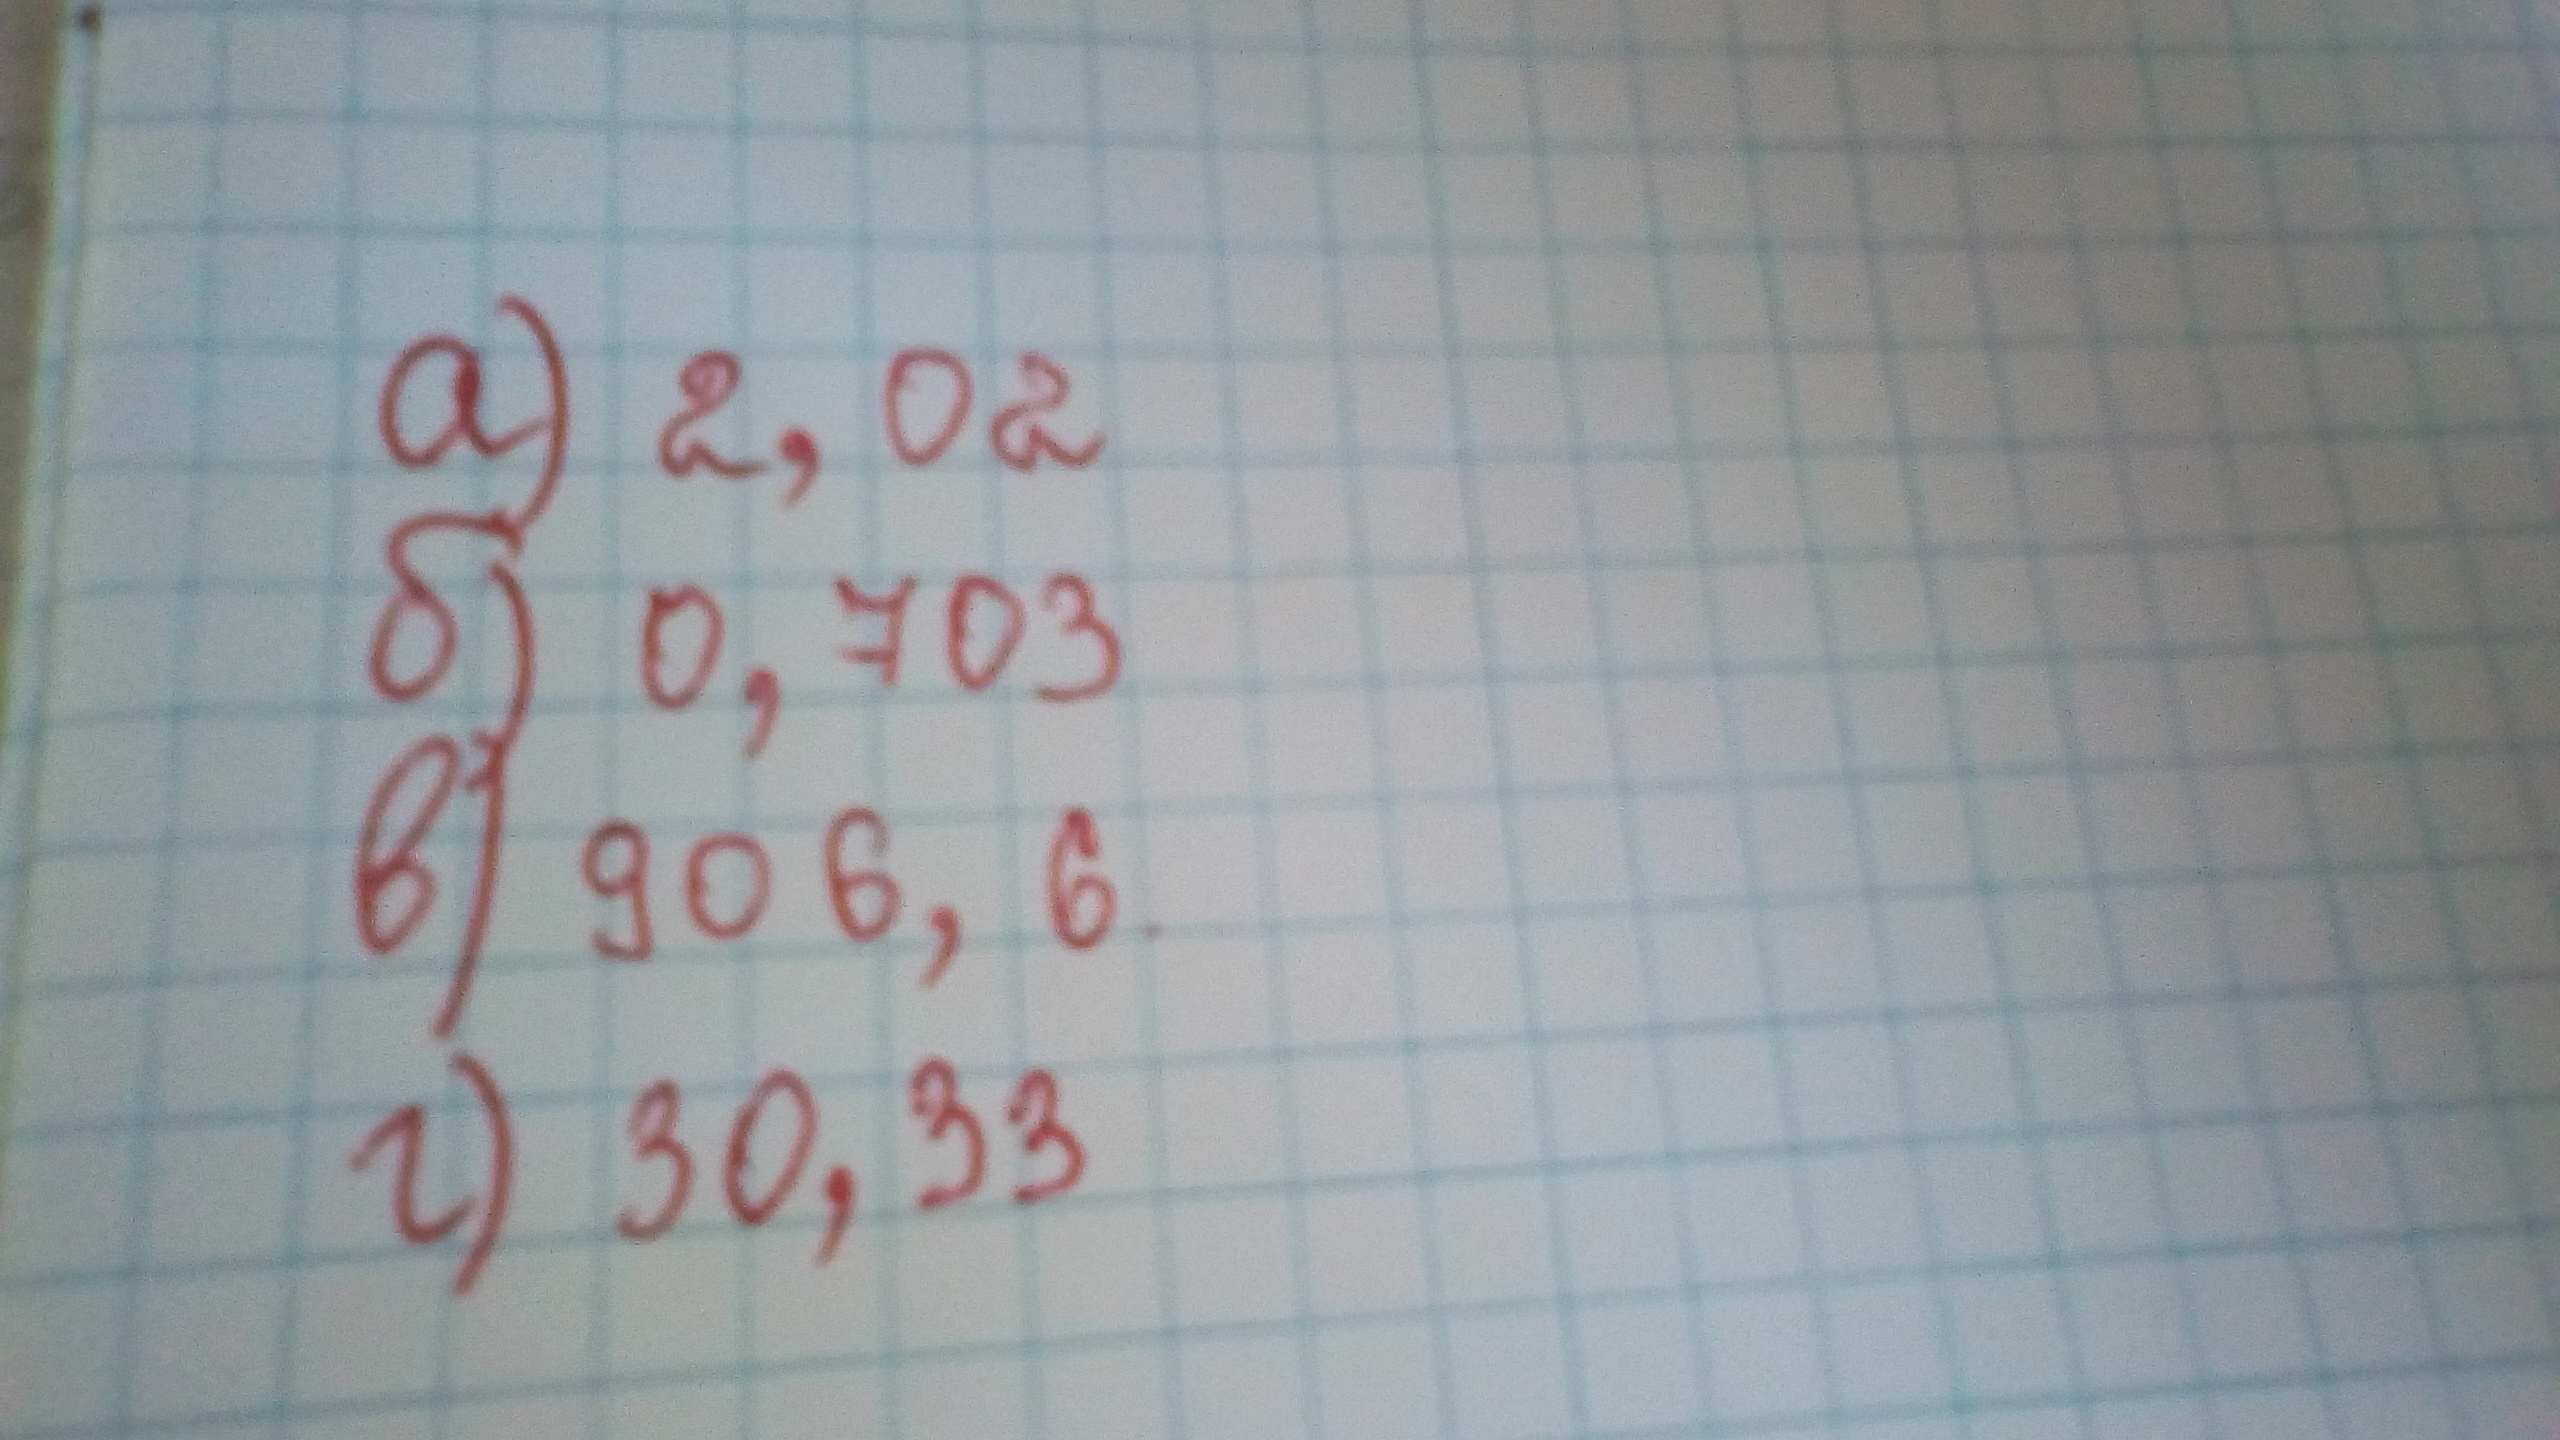 а) 2,02
б) 0,703
в) 906,6
г) 30,33